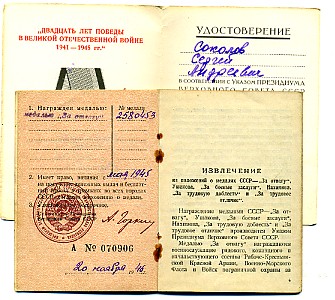 „ДВАДЦАТЬ ЛЕТ ПОБЕДЫ
В ВЕЛИКОЙ ОТЕЧЕСТВЕННОЙ ВОЙНЕ
1941—1945 гг."
УДОСТОВЕРЕНИЕ
Соколов
Сергей
Андреевич
В СООТВЕТСТВИИ С УКАЗОМ ПРЕЗИДИУМА
ВЕРХОВНОГО СОВЕТА СССР
1. Награжден медалью: № медали
медалью „За отвагу" 2580453
2. Имеет право, начиная
с мая 1945
А. Горкин
А № 070906
20 ноября 46
ИЗВЛЕЧЕНИЕ
из положений о медалях СССР—„За отвагу",
Ушакова, „За боевые заслуги", Нахимова,
„За трудовую доблесть" и „За трудовое
отличие".
Награждение медалями СССР—„За от-
вагу", Ушакова, „За боевые заслуги",
Нахимова, „За трудовую доблесть" и „За
трудовое отличие" производится Указом
Президиума Верховного Совета СССР.
Медалью „За отвагу" награждаются
военнослужащие рядового, командного и
начальствующего состава Рабоче-Крестьян-
ской Красной Армии, Военно-Морского
Флота и Войск пограничной охраны за